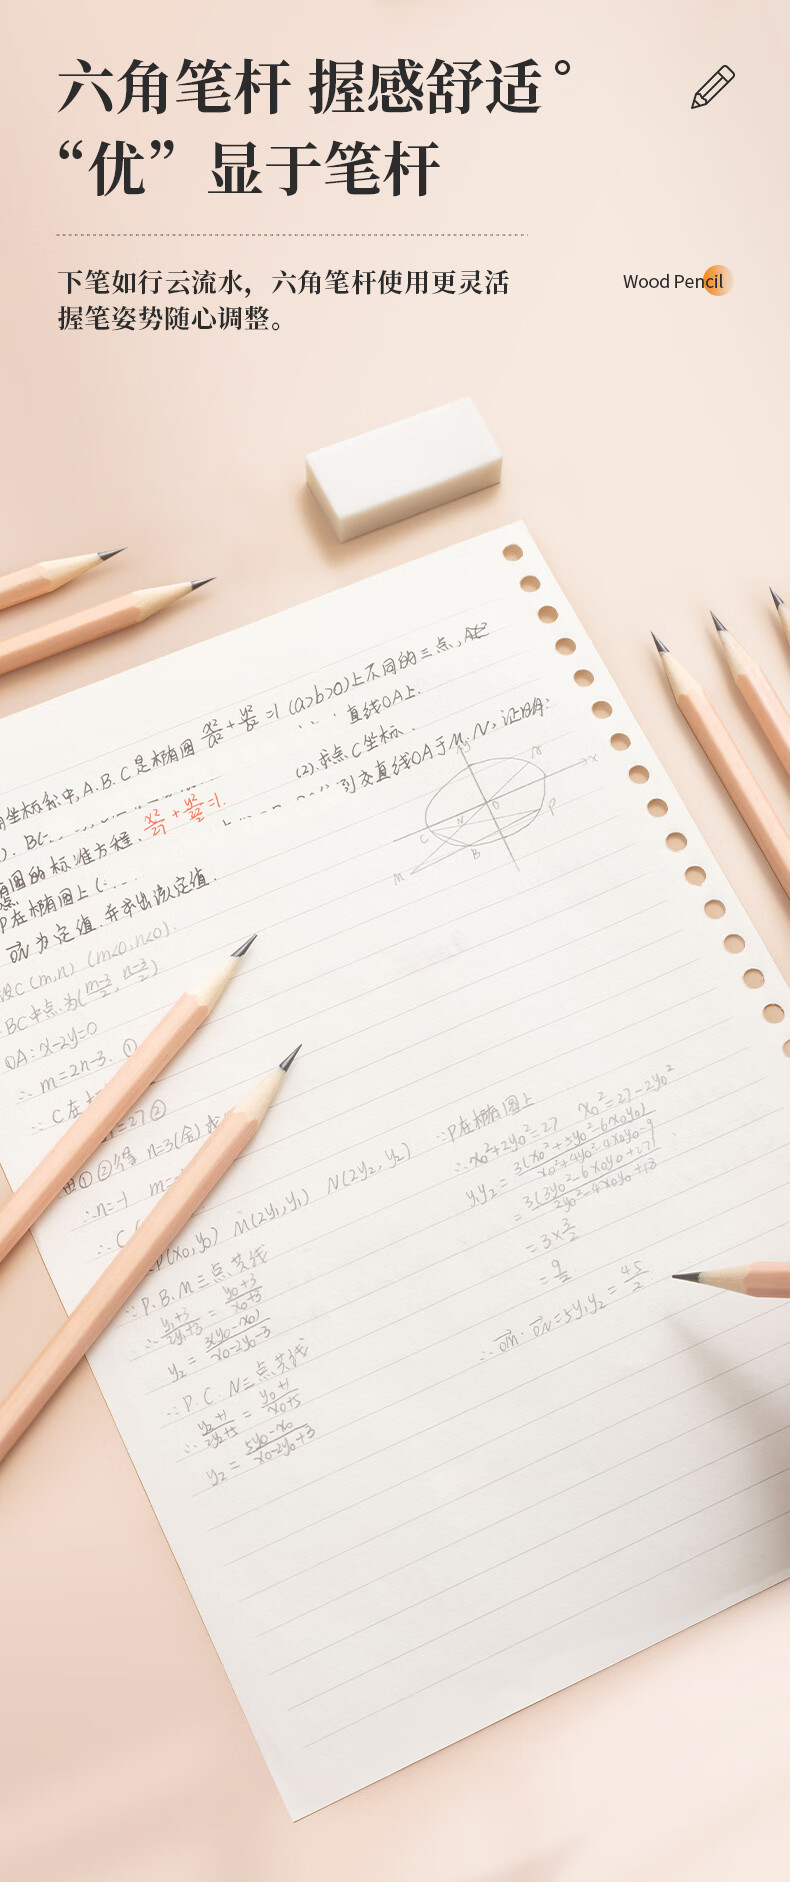 六角笔杆 握感舒适°
“优” 显于笔杆
下笔如行云流水，六角笔杆使用更灵活
握笔姿势随心调整。
Wood Pencil
坐标系中,A.B.C是椭圆 x²/a² + y²/b² =1 (a>b>0)上不同的三点,
直线OA上.
(2).求点C坐标.
圆的标准方程. x²/27 + y²/ =1.
交直线OA于M.N,证明:
P在椭圆上
为定值.并求出该定值.
设C(m,n) (m<0,n<0).
BC中点为(m-3/2, n-3/2)
OA:x-2y=0
∴ m=2n-3. ①
∴ C在
=27 ②
①②得 n=3(舍)
∴n=-1 m=
∴ C
P(x₀,y₀) M(2y₁,y₁) N(2y₂,y₂)
∵P.B.M三点共线
∴ y₁+3/2y₁+3 = y₀+3/x₀+3
y₂ = 3(y₀-x₀)/x₀-2y₀-3
∵P.C.N三点共线
∴ y₂+1/2y₂+5 = y₀+1/x₀+5
y₂ = 5y₀-x₀/x₀-2y₀+3
∵P在椭圆上
∴x₀²+2y₀²=27 x₀²=27-2y₀²
y₁y₂ = 3(x₀²+5y₀²-6x₀y₀)/x₀²+4y₀²-4x₀y₀-9
= 3(3y₀²-6x₀y₀+27)/2y₀²-4x₀y₀+18
= 3×3/2
= 9/2
∴ OM · ON =5y₁y₂ = 45/2
y
A
x
O
N
P
C
B
M